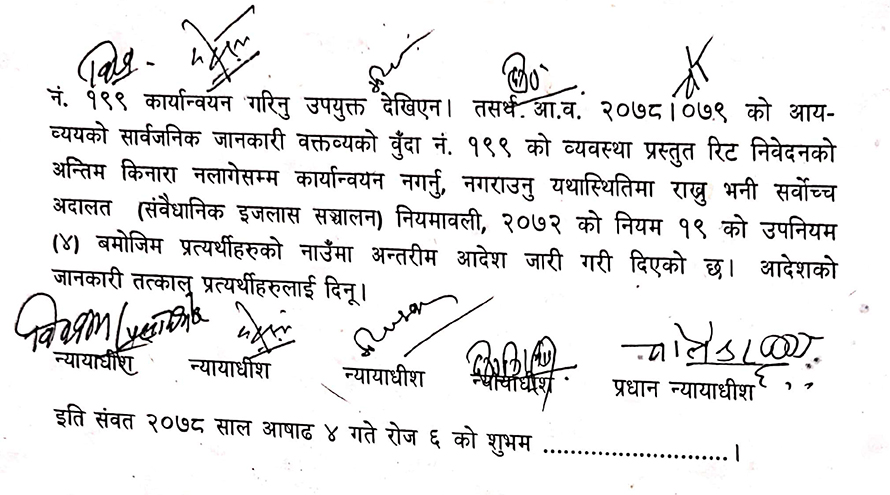 नं. १९९ कार्यान्वयन गरिनु उपयुक्त देखिएन। तसर्थ आ.व. २०७८।०७९ को आय-
व्ययको सार्वजनिक जानकारी वक्तव्यको बुँदा नं. १९९ को व्यवस्था प्रस्तुत रिट निवेदनको
अन्तिम किनारा नलागेसम्म कार्यान्वयन नगर्नु, नगराउनु यथास्थितिमा राख्नु भनी सर्वोच्च
अदालत (संवैधानिक इजलास सञ्चालन) नियमावली, २०७२ को नियम १९ को उपनियम
(४) बमोजिम प्रत्यर्थीहरुको नाउँमा अन्तरीम आदेश जारी गरी दिएको छ। आदेशको
जानकारी तत्काल प्रत्यर्थीहरुलाई दिनू।
न्यायाधीश न्यायाधीश न्यायाधीश न्यायाधीश प्रधान न्यायाधीश
इति संवत २०७८ साल आषाढ ४ गते रोज ६ को शुभम ........................।